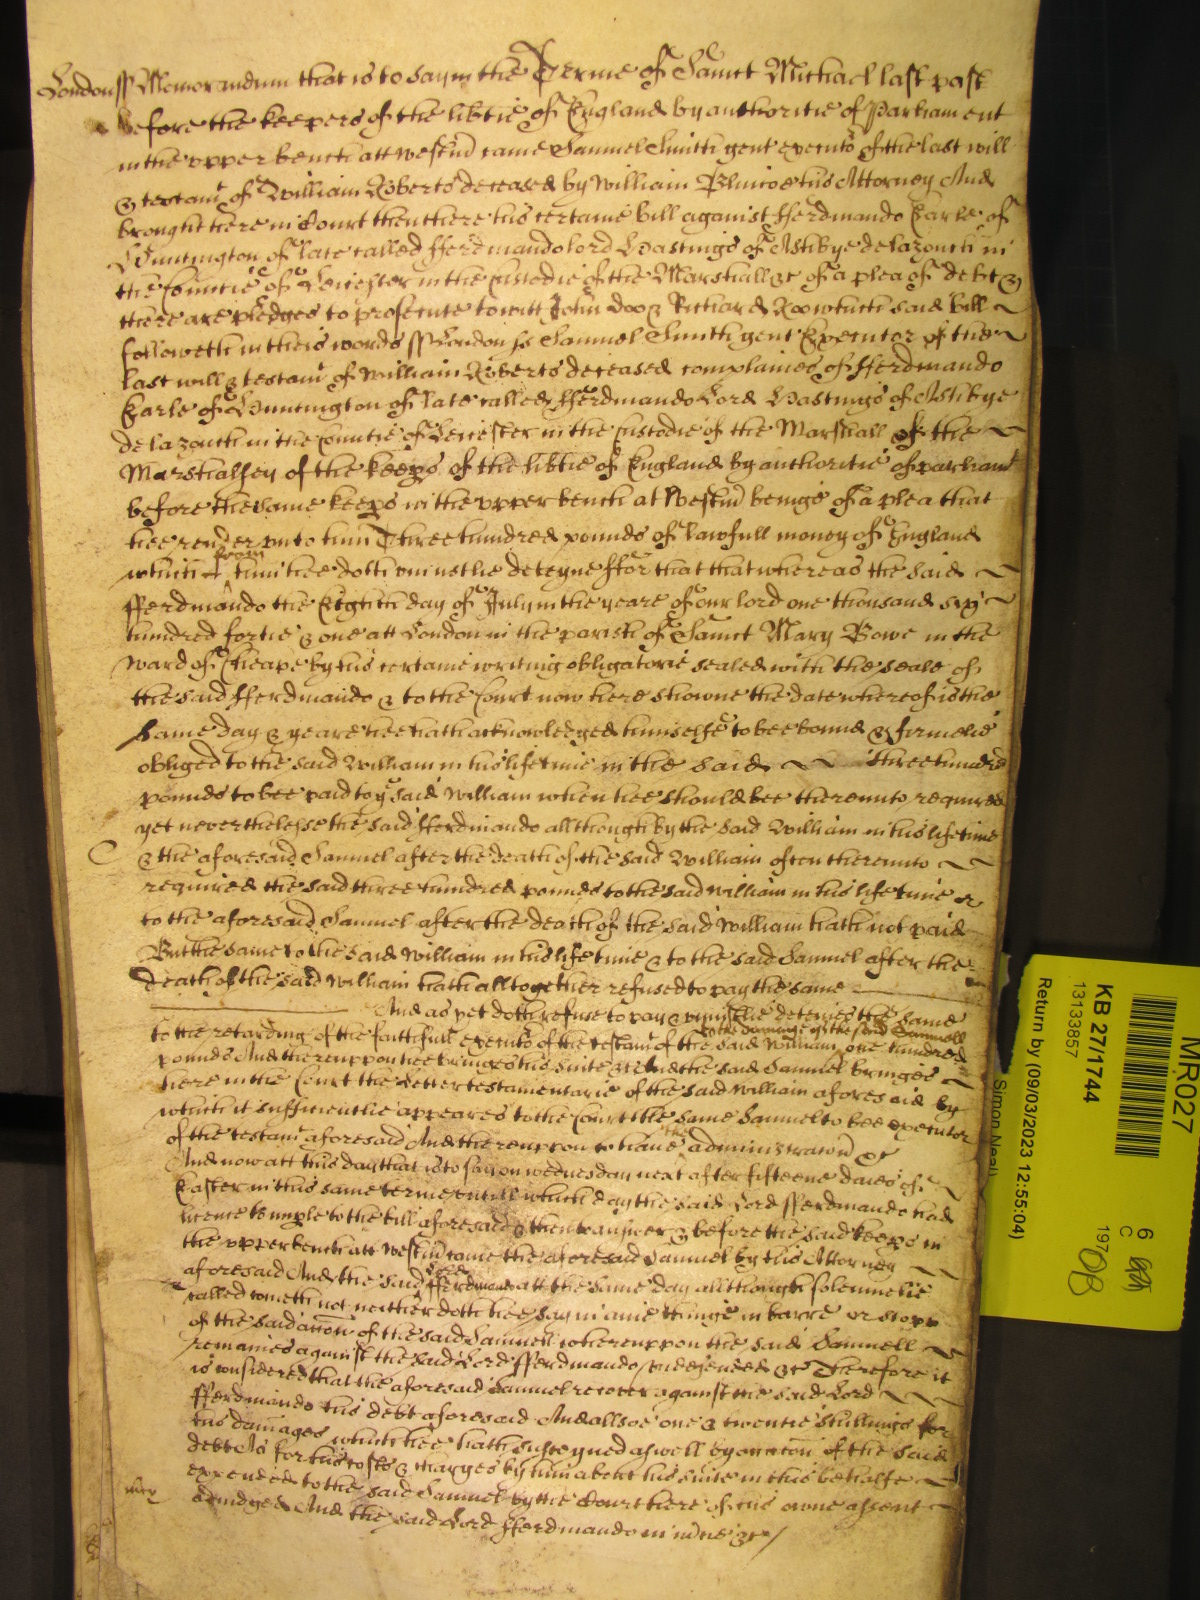 London ss Memorandum that is to say in the Terme of Sainct Michael last past
before the keepers of the libtie of England by authoritie of Parliament
in the upper bench att Westm̄ came Samuel Smith gent executo^r of the last will
& testam^t of William Roberts deceased by William Blincoe his Attorney And
brought here in Court then there his certaine bill against fferdinando Earle of
Huntington of late called fferdinando lord Hastings of Ashbye delazouch in
the Countie of Leicester in the custodie of the Marshall &c of a plea of debt &
there are pledges to prosecute to witt John Doo & Richard Roo which said bill
followeth in theis words ss London ss Samuel Smith gent Executor of the
last will & testam^t of William Roberts deceased complaines of fferdinando
Earle of Huntington of late called fferdinando Lord Hastings of Ashbye
de lazouch in the countie of Leicester in the custodie of the Marshall of the
Marshalsey of the keeps of the libtie of England by authoritie of parliam^t
before the same keeps in the upper bench at Westm̄ beinge of a plea that
hee render unto him Three hundred pounds of lawfull money of England
which from him hee doth uniustlie deteyne ffor that that whereas the said
fferdinando the Eighth day of July in the yeare of our lord one thousand six
hundred fortie & one att London in the parish of Sainct Mary Bowe in the
ward of Cheape by his certaine writing obligatorie sealed with the seale of
the said fferdinando & to the Court now here showne the date whereof is the
same day & yeare hee hath acknowledged himselfe to bee bound & firmelie
obliged to the said William in his life time in the said three hundred
pounds to bee paid to y^e said William when hee should bee thereunto required
yet neverthelesse the said fferdinando although by the said William in his lifetime
& the aforesaid Samuel after the death of the said William often thereunto
required the said three hundred pounds to the said William in his life time or
to the aforesaid Samuel after the death of the said William hath not paid
But the same to the said William in his life time & to the said Samuel after the
death of the said William hath alltogether refused to pay the same
And as yet doth refuse to pay & uniustlie deteines the same
to the retarding of the faithfull execuc̄o of the testam^t of the said William to the damage of the said Samuell one hundred
pounds And thereuppon hee bringes his suite &c And the said Samuel bringes
here in the Court the Letters testamentarie of the said William aforesaid by
which it sufficientlie appeares to the Court the same Samuel to bee executor
of the testam^t aforesaid And thereuppon to have the administrac̄on &c
And now att this day that is to say on wednesday next after fifteene daies of
Easter in this same terme untill which day the said Lord fferdinando had
licence to imple to the bill aforesaid & then to answer & before the said keeps in
the upper bench att Westm̄ come the aforesaid Samuel by his Attorney
aforesaid And the said Lord fferdinando att the same day allthough solemnelie
called cometh not neither doth hee say in anie thinge in barre or stopp
of the said acc̄on of the said Samuell whereuppon the said Samuell
remaines against the said Lord fferdinando undefended &c Therefore it
is considered that the aforesaid Samuel recover against the said Lord
fferdinando his debt aforesaid And allsoe one & twentie shillings for
his damages which hee hath susteyned aswell by occac̄on of the said
debt As for his costs & charges by him about his suite in this behalfe
expended to the said Samuel by the Court here of his owne assent
adiudged And the said Lord fferdinando in m̄cie &c
m̄cy
MR027
KB 27/1744
13133857
Return by (09/03/2023 12:55:04)
Simon Neal
6
C
197